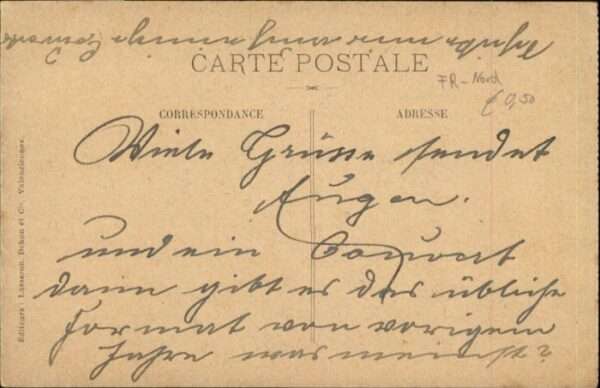 CARTE POSTALE
FR-Nord
€ 0,50
CORRESPONDANCE
ADRESSE
Viele Grüsse sendet
Eugen.
und ein Couvert
dann gibt es das übliche
Format von vorigem
Jahre was meinst?
Editeurs: Lasseron, Dehon et Cie, Valenciennes.